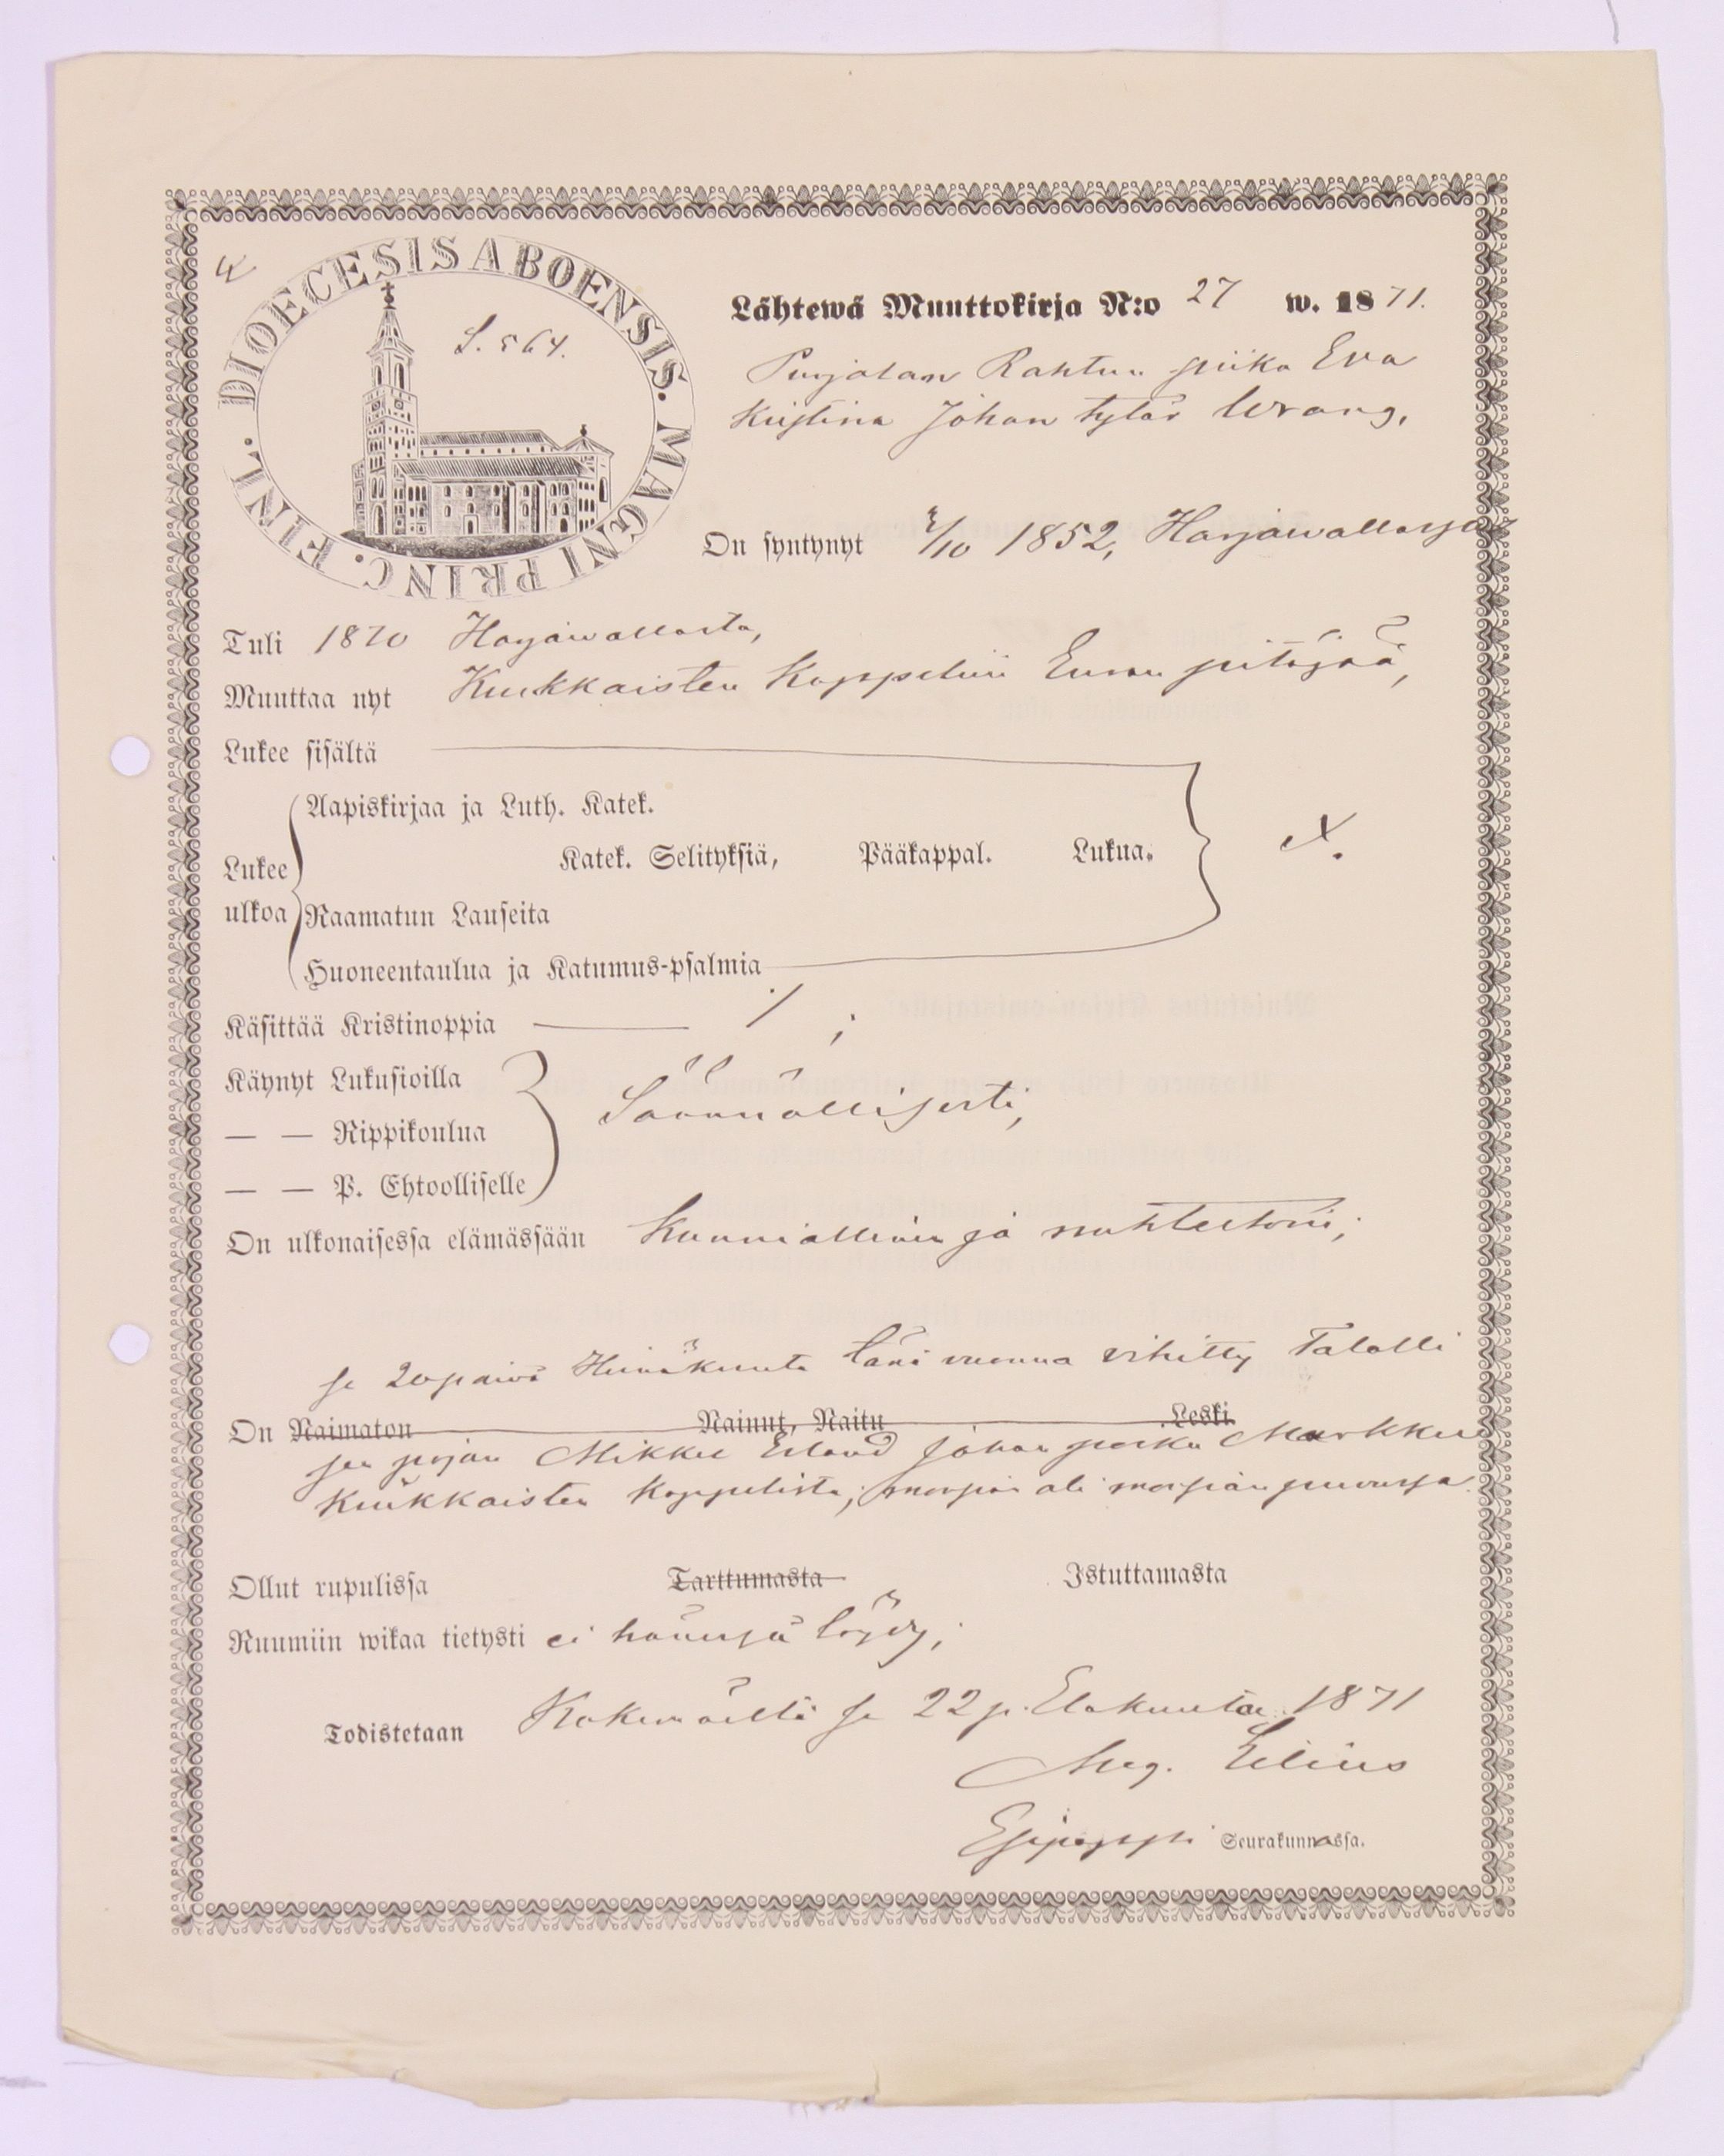 DIOECESIS ABOENSIS. MAGNI PRINC. FINL.
S. 564.
Lähtewä Muuttokirja N:o 27 w. 1871.
Purjalan Rahtun piika Eva
Kristina Johan tytär Wrang,
On syntynyt 2/10 1852, Harjawallassa
Tuli 1870 Harjawallasta,
Muuttaa nyt Kiukkaisten Kappeliin Euran pitäjää,
Lukee sisältä
Aapiskirjaa ja Luth. Katek.
Lukee Katek. Selityksiä, Pääkappal. Lukua.
ulkoa Raamatun Lauseita
Huoneentaulua ja Katumus-psalmia
Käsittää Kristinoppia
Käynyt Lukusioilla
— — Rippikoulua Säännöllisesti,
— — P. Ehtoolliselle
On ulkonaisessa elämässään kunniallinen ja nuhteetoin;
se 20 päivä Heinäkuuta tänä vuonna vihitty Talolli
On Naimaton Nainut, Naitu Leski
sen pojan Mikkel Erland Johan pojan Markkula
Kiukkaisten Kappelista; morsian oli morsian puvussa.
Ollut rupulissa Tarttumasta Istuttamasta
Ruumiin wikaa tietysti ei hänessä löydy;
Todistetaan Kokemäellä se 22 p. Elokuuta 1871
Aug.
Seurakunnassa.